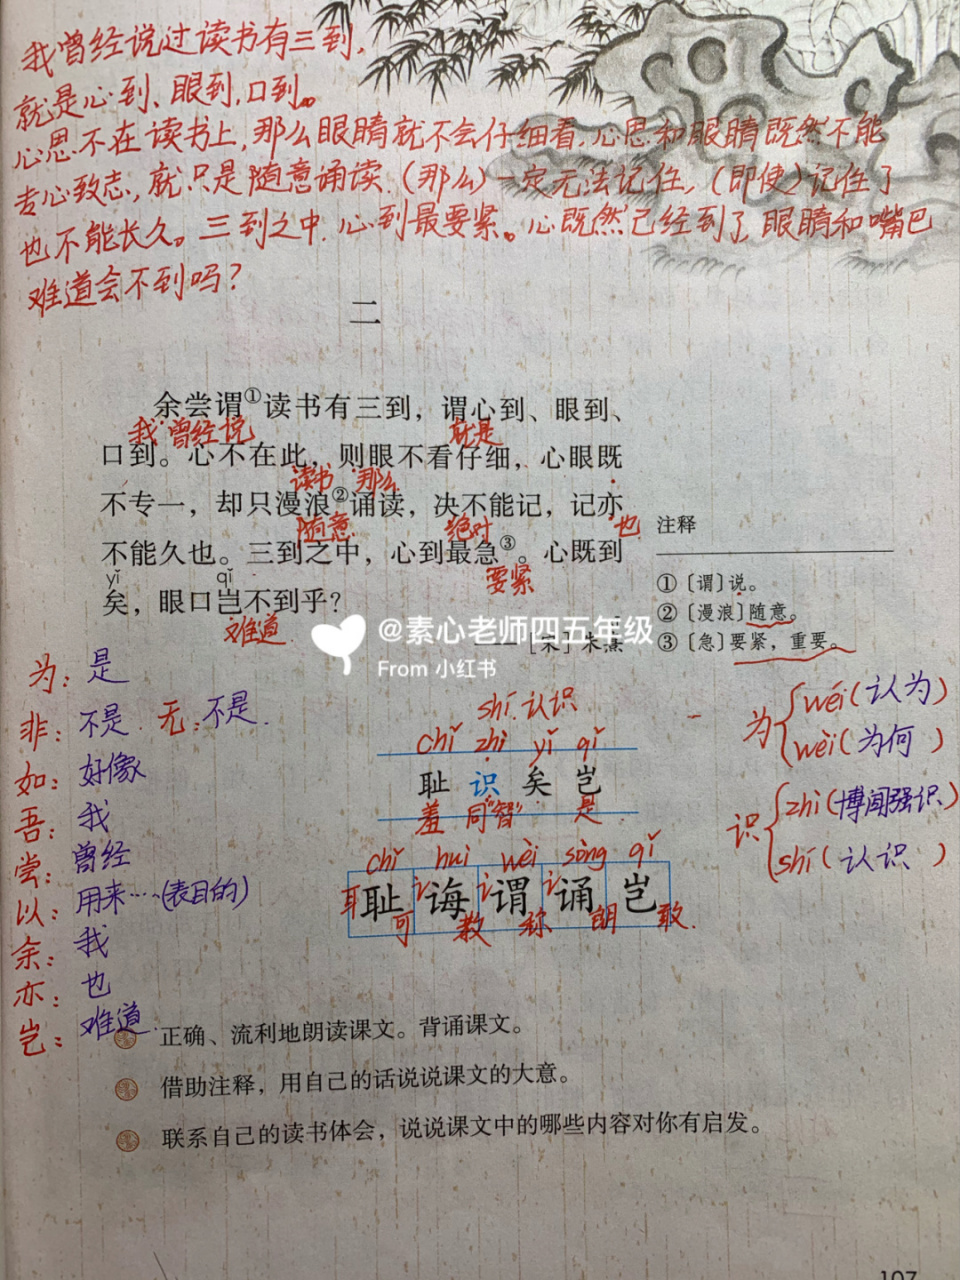 我曾经说过读书有三到,
就是心到、眼到,口到。
心思不在读书上,那么眼睛就不会仔细看,心思和眼睛既然不能
专心致志,就只是随意诵读.(那么)一定无法记住,(即使)记住了
也不能长久。三到之中.心到最要紧。心既然已经到了,眼睛和嘴巴
难道会不到吗?
二
余尝谓①读书有三到，谓心到、眼到、
我 曾经 说 就是
口到。心不在此，则眼不看仔细，心眼既
读书 那么
不专一，却只漫浪②诵读，决不能记，记亦
随意 绝对 也
不能久也。三到之中，心到最急③。心既到
要紧
yǐ qǐ
矣，眼口岂不到乎？
难道
——［宋］朱熹
注释
①〔谓〕说。
②〔漫浪〕随意。
③〔急〕要紧，重要。
@素心老师四五年级
From 小红书
为: 是
非: 不是. 无: 不是.
如: 好像
吾: 我
尝: 曾经
以: 用来……(表目的)
余: 我
亦: 也
岂: 难道.
shí.认识
chǐ zhì yǐ qǐ
耻 识 矣 岂
羞 同“智” 是
chǐ huì wèi sòng qǐ
耻 诲 谓 诵 岂
耳 讠 讠 讠
可 教 称 朗 敢.
为 wéi(认为)
wèi(为何)
识 zhì(博闻强识)
shí(认识)
正确、流利地朗读课文。背诵课文。
借助注释，用自己的话说说课文的大意。
联系自己的读书体会，说说课文中的哪些内容对你有启发。
107